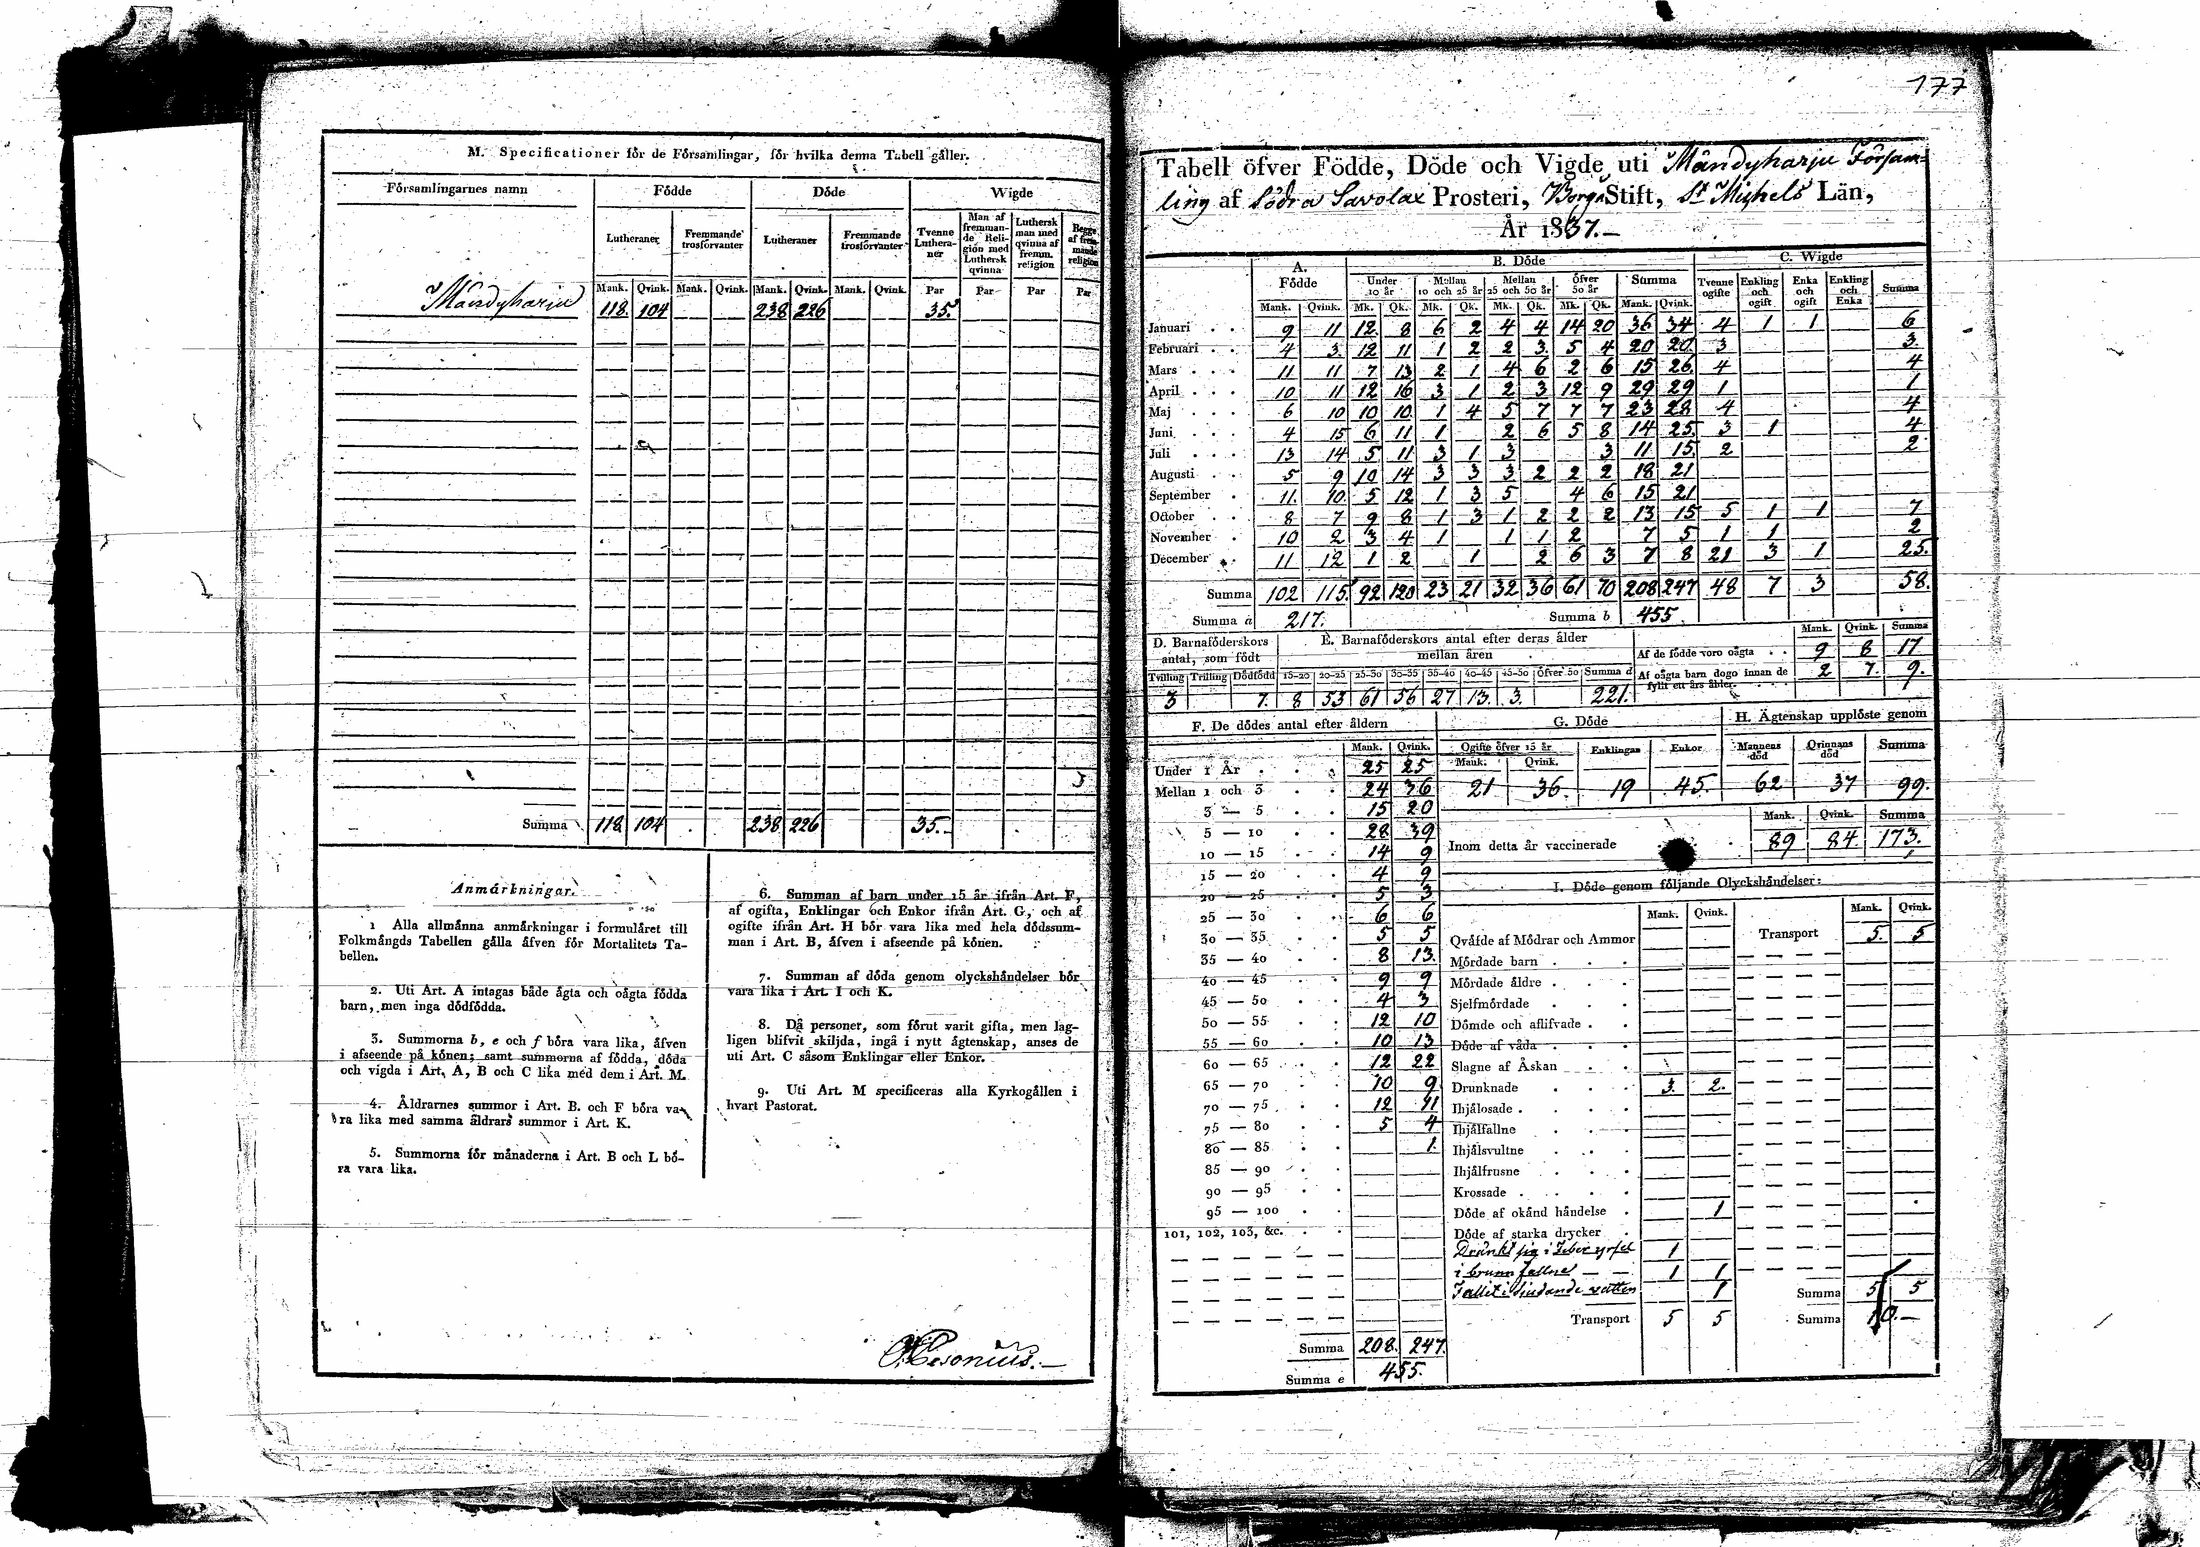 M. Specificationer för de Församlingar, för hvilka denna Tabell gäller.
Församlingarnes namn Födde Döde Wigde
Lutheraner Fremmande trosförvanter Lutheraner Fremmande trosförvanter Tvenne Lutheraner Man af fremmande Religion med Luthersk qvinna Luthersk man med qvinna af fremm. religion Begge af fremmande religion
Mank. Qvink. Mank. Qvink. Mank. Qvink. Mank. Qvink. Par Par Par Par
Mändyharju 118. 104 238 226 35.
Summa 118. 104 238 226 35.
Anmärkningar.
1 Alla allmänna anmärkningar i formuläret till
Folkmängds Tabellen gälla äfven för Mortalitets Ta-
bellen.
2. Uti Art. A intagas både ägta och oägta födda
barn, men inga dödfödda.
3. Summorna b, e och f böra vara lika, äfven
i afseende på könen; samt summorna af födda, döda
och vigda i Art. A, B och C lika med dem i Art. M.
4. Åldrarnes summor i Art. B. och F böra va-
ra lika med samma åldrars summor i Art. K.
5. Summorna för månaderna i Art. B och L bö-
ra vara lika.
6. Summan af barn under 15 år ifrån Art. F,
af ogifta, Enklingar och Enkor ifrån Art. G, och af
ogifte ifrån Art. H bör vara lika med hela dödssum-
man i Art. B, äfven i afseende på könen.
7. Summan af döda genom olyckshändelser bör
vara lika i Art. I och K.
8. Då personer, som förut varit gifta, men lag-
ligen blifvit skiljda, ingå i nytt ägtenskap, anses de
uti Art. C såsom Enklingar eller Enkor.
9. Uti Art. M specificeras alla Kyrkogällen i
hvart Pastorat.
177
Tabell öfver Födde, Döde och Vigde uti Mändyharju Församling
af Södra Savolax Prosteri, Borgå Stift, St Michels Län,
År 1837.
A. Födde B. Döde C. Wigde
Under 10 år Mellan 10 och 25 år Mellan 25 och 50 år Öfver 50 år Summa Tvenne ogifte Enkling och ogift Enka och ogift Enkling och Enka Summa
Mank. Qvink. Mk. Qk. Mk. Qk. Mk. Qk. Mk. Qk. Mank. Qvink.
Januari 9 11 12 8 6 2 4 4 14 20 36 34 4 1 1 6
Februari 4 3. 12 11 1 2 2 3. 5 4 20 20. 3 3.
Mars 11 11 7 13 2 1 4 6 2 6 15 26 4 4
April 10 11 12 16 3 1 2 3 12 9 29 29 1 1
Maj 6 10 10 10 1 4 5 7 7 7 23 28 4 4
Juni 4 15 6 11 1 2 6 5 8 14 25. 3 1 4
Juli 13 14 5 11 3 1 3 3 11 15. 2 2
Augusti 5 9 10 14 3 3 3 2 2 2 18 21
September 11. 10. 5 12 1 3 5 4 6 15 21
October 8 7 9 8 1 3 1 2 2 2 13 15 5 1 1 7
November 10 2 3 4 1 1 1 2 7 5 1 1 2
December 11 12 1 2 1 2 6 3 7 8 21 3 1 25.
Summa 102 115. 92 120 23 21 32 36 61 70 208 247 48 7 3 58.
Summa a 217. Summa b 455.
D. Barnaföderskors antal, som födt
Tvilling Trilling Dödfödd
3 7.
E. Barnaföderskors antal efter deras ålder mellan åren
15-20 20-25 25-30 30-35 35-40 40-45 45-50 Öfver 50 Summa d
8 53 61 56 27 13. 3. 221.
Mank. Qvink. Summa
Af de födde voro oägta 9 8 17
Af oägta barn dogo innan de fyllt ett års ålder 2 7. 9.
F. De dödes antal efter åldern
Mank. Qvink.
Under 1 År 25 25
Mellan 1 och 3 24 36
3 — 5 15 20
5 — 10 28 39
10 — 15 14 9
15 — 20 4 9
20 — 25 5 3
25 — 30 6 6
30 — 35 5 5
35 — 40 8 13.
40 — 45 9 9
45 — 50 4 3
50 — 55 12 10
55 — 60 10 13
60 — 65 12 22
65 — 70 10 9
70 — 75 12 11
75 — 80 5 4
80 — 85 1.
85 — 90
90 — 95
95 — 100
101, 102, 103, &c.
Summa 208. 247.
Summa e 455.
G. Döde
Ogifte öfver 15 år Enklingar Enkor
Mank. Qvink.
21 36. 19 45.
H. Ägtenskap upplöste genom
Mannens död Qvinnans död Summa
62 37 99.
Mank. Qvink. Summa
Inom detta år vaccinerade 89 84. 173.
I. Döde genom följande Olyckshändelser:
Mank. Qvink. Mank. Qvink.
Qväfde af Mödrar och Ammor
Transport 5. 5
Mördade barn
Mördade äldre
Sjelfmördade
Dömde och aflifvade
Döde af våda
Slagne af Åskan
Drunknade 3. 2.
Ihjälosade
Ihjälfallne
Ihjälsvultne
Ihjälfrusne
Krossade
Döde af okänd händelse 1
Döde af starka drycker
Dränkt sig i feber yrsel 1
i brunn fallne 1 1
Fallit i sjudande vatten 1
Transport 5 5
Summa 5 5
Summa 10.